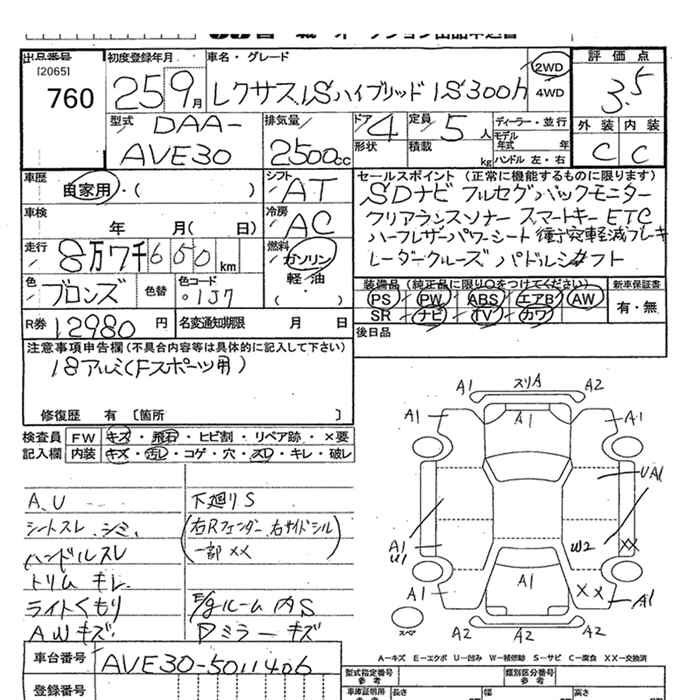 出品番号
[2065]
760
初度登録年月
25 9月
車名・グレード
レクサスISハイブリッド IS300h
2WD
4WD
評価点
3.5
外装 内装
C C
型式
DAA-
AVE30
排気量
2500cc
ドア 4
形状
定員 5人
積載量 kg
ディーラー・並行
モデル
年式 年
ハンドル 左・右
車歴
自家用・( )
シフト
AT
セールスポイント (正常に機能するものに限ります)
SDナビ フルセグ バックモニター
クリアランスソナー スマートキー ETC
ハーフレザーパワーシート 衝突軽減ブレーキ
レーダークルーズ パドルシフト
車検
年 月( 日)
冷房
AC
走行
8万7千650km
燃料
ガソリン
軽/油
( ・ )
色
ブロンズ
色替
色コード
1J7
装備品 (純正品に限り○をつけてください)
PS PW ABS エアB AW
SR ナビ TV カワ
新車保証書
有・無
R券 12980円
名変通知期限 月 日
後日品
注意事項申告欄(不具合内容等は具体的に記入して下さい)
18アルミ(Fスポーツ用)
修復歴 有 〔箇所 〕
検査員
記入欄
FW キズ・飛石・ヒビ割・リペア跡・×要
内装 キズ・汚レ・コゲ・穴・スレ・キレ・破レ
A、U
シートスレ、シミ、
ハンドルスレ
トリムキレ
ライトくもり
AWキズ
下廻りS
(右Rフェンダー、右サイドシル)
一部××
E/gルーム内S
Dミラーキズ
A1 スリA A2
A1 A1 A1
UA1
A1
U1
W2 ××
A1 ××
A1 A1
A2 A2
スペア
A―キズ E―エクボ U―凹み W―補修跡 S―サビ C―腐食 XX―交換済
車台番号 AVE30-5011406
登録番号
型式指定番号
参考
類別区分番号
参考
車庫証明用
参考
長さ 幅 高さ